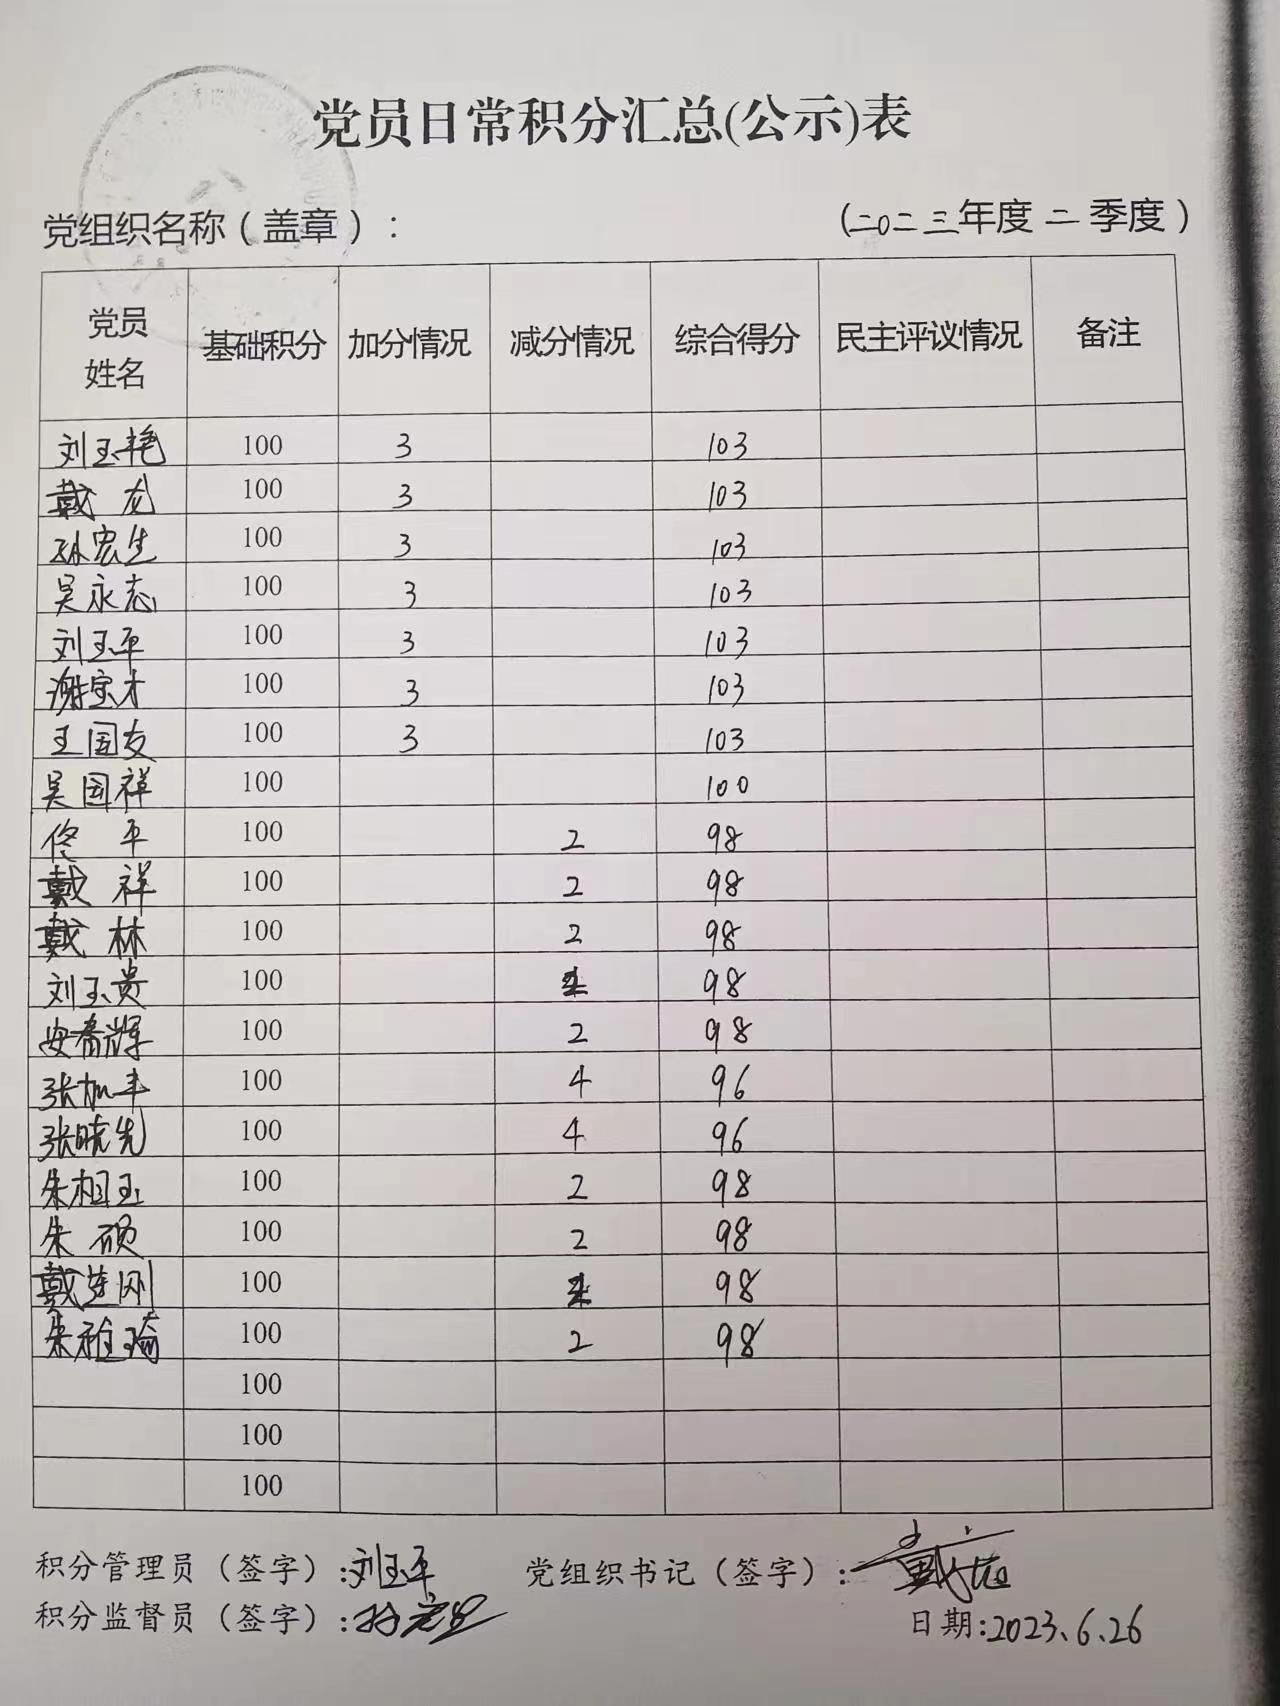 党员日常积分汇总(公示)表
党组织名称（盖章）： (二0二三年度二季度)
党员姓名 基础积分 加分情况 减分情况 综合得分 民主评议情况 备注
刘玉艳 100 3 103
戴龙 100 3 103
孙宏生 100 3 103
吴永志 100 3 103
刘玉平 100 3 103
谢宝才 100 3 103
王国友 100 3 103
吴国祥 100 100
佟平 100 2 98
戴祥 100 2 98
戴林 100 2 98
刘玉贵 100 2 98
安春辉 100 2 98
张加丰 100 4 96
张晓先 100 4 96
朱相玉 100 2 98
朱硕 100 2 98
戴连刚 100 2 98
朱雅瑜 100 2 98
100
100
100
积分管理员（签字）:刘玉平 党组织书记（签字）:戴龙
积分监督员（签字）:孙宏生 日期:2023.6.26